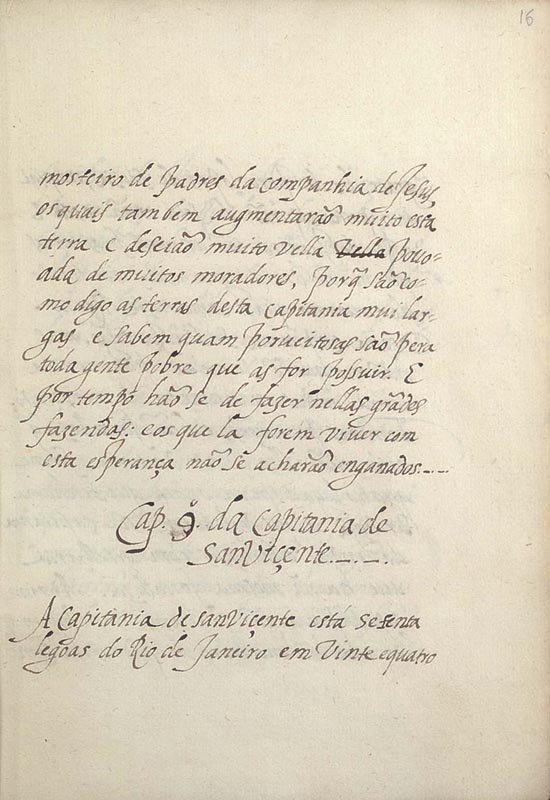 16
mosteiro de padres da companhia de Jesus,
os quais tambem augmentarão muito esta
terra e deseião muito vella Vella povo-
ada de muitos moradores, porq̃ são co-
mo digo as terras desta capitania mui lar-
gas e sabem quam proveitosas são pera
toda gente pobre que as for possuir. E
por tempo hão se de fazer nellas grãdes
fazendas: e os que la forem viver com
esta esperança não se acharão enganados.--
Cap. 9.º da Capitania de
San Viçente.-.-.
A Capitania de san Viçente está setenta
legoas do Rio de Janeiro em Vinte e quatro